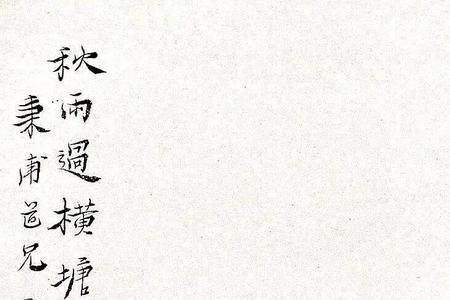 秋雨過橫塘
秉甫道兄